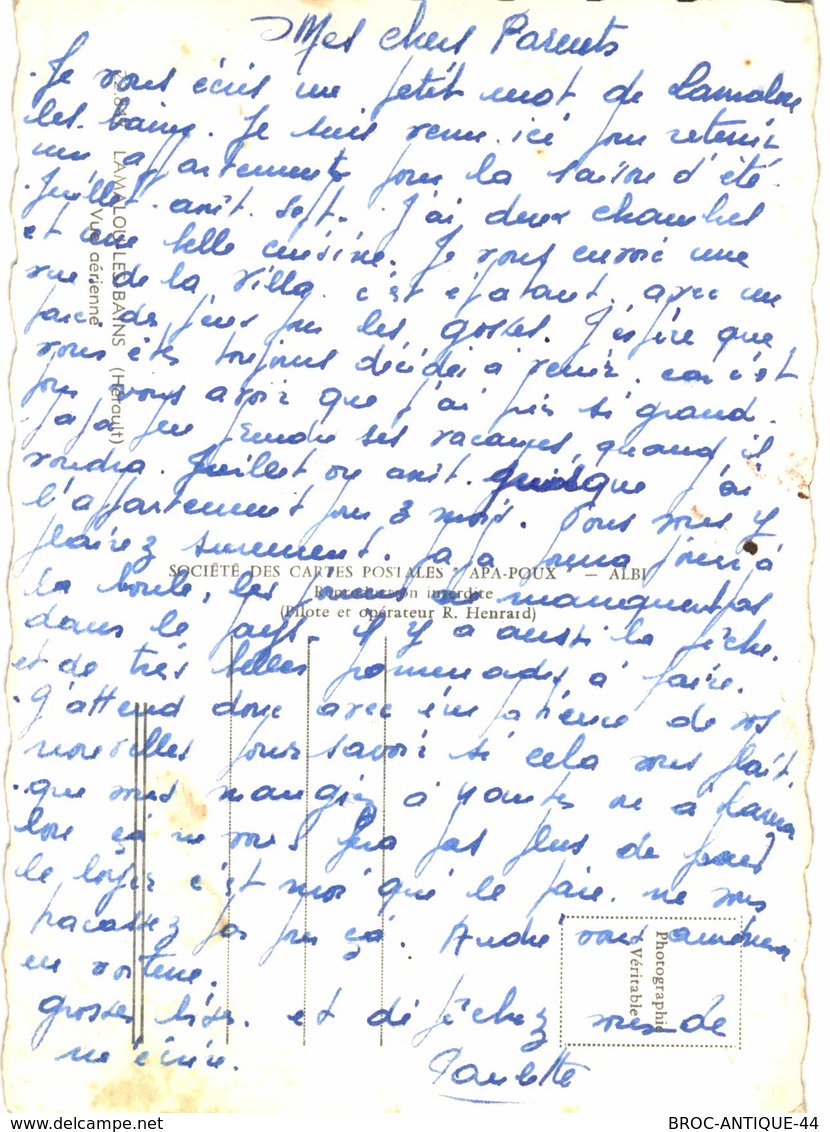 Mes chers Parents
Je vous écris un petit mot de Lamalou
les bains. Je suis venue ici pour retenir
un appartement pour la saison d'été.
Juillet. août. Sept. J'ai deux chambres
et une belle cuisine. Je vous envoie une
vue de la villa. c'est épatant. avec un
parc de jeux pour les gosses. J'espère que
vous êtes toujours décidés à venir. car c'est
pour vous avoir que j'ai pris si grand.
Papa peu prendre ses vacances quand il
voudra. Juillet ou août. puisque j'ai
l'appartement pour 3 mois. Vous vous y
plairez surement. papa pourra jouer à
la boule, les places ne manquent pas
dans le pays. il y a aussi la pêche.
et de très belles promenades à faire.
J'attend donc avec impatience de vos
nouvelles pour savoir si cela vous plait.
que vous mangiez à Nantes ou à Lama
lou çà ne vous fera pas plus de frais
le loyer c'est moi qui le paie. ne vous
tracassez pas pour çà. André vous amènera
en voiture.
grosses bises. et dépêchez vous de
m'écrire.
Paulette
LAMALOU-LES-BAINS (Hérault)
Vue aérienne
SOCIÉTÉ DES CARTES POSTALES " APA-POUX " — ALBI
Reproduction interdite
(Pilote et opérateur R. Henrard)
Photographie
Véritable
www.delcampe.net
BROC-ANTIQUE-44